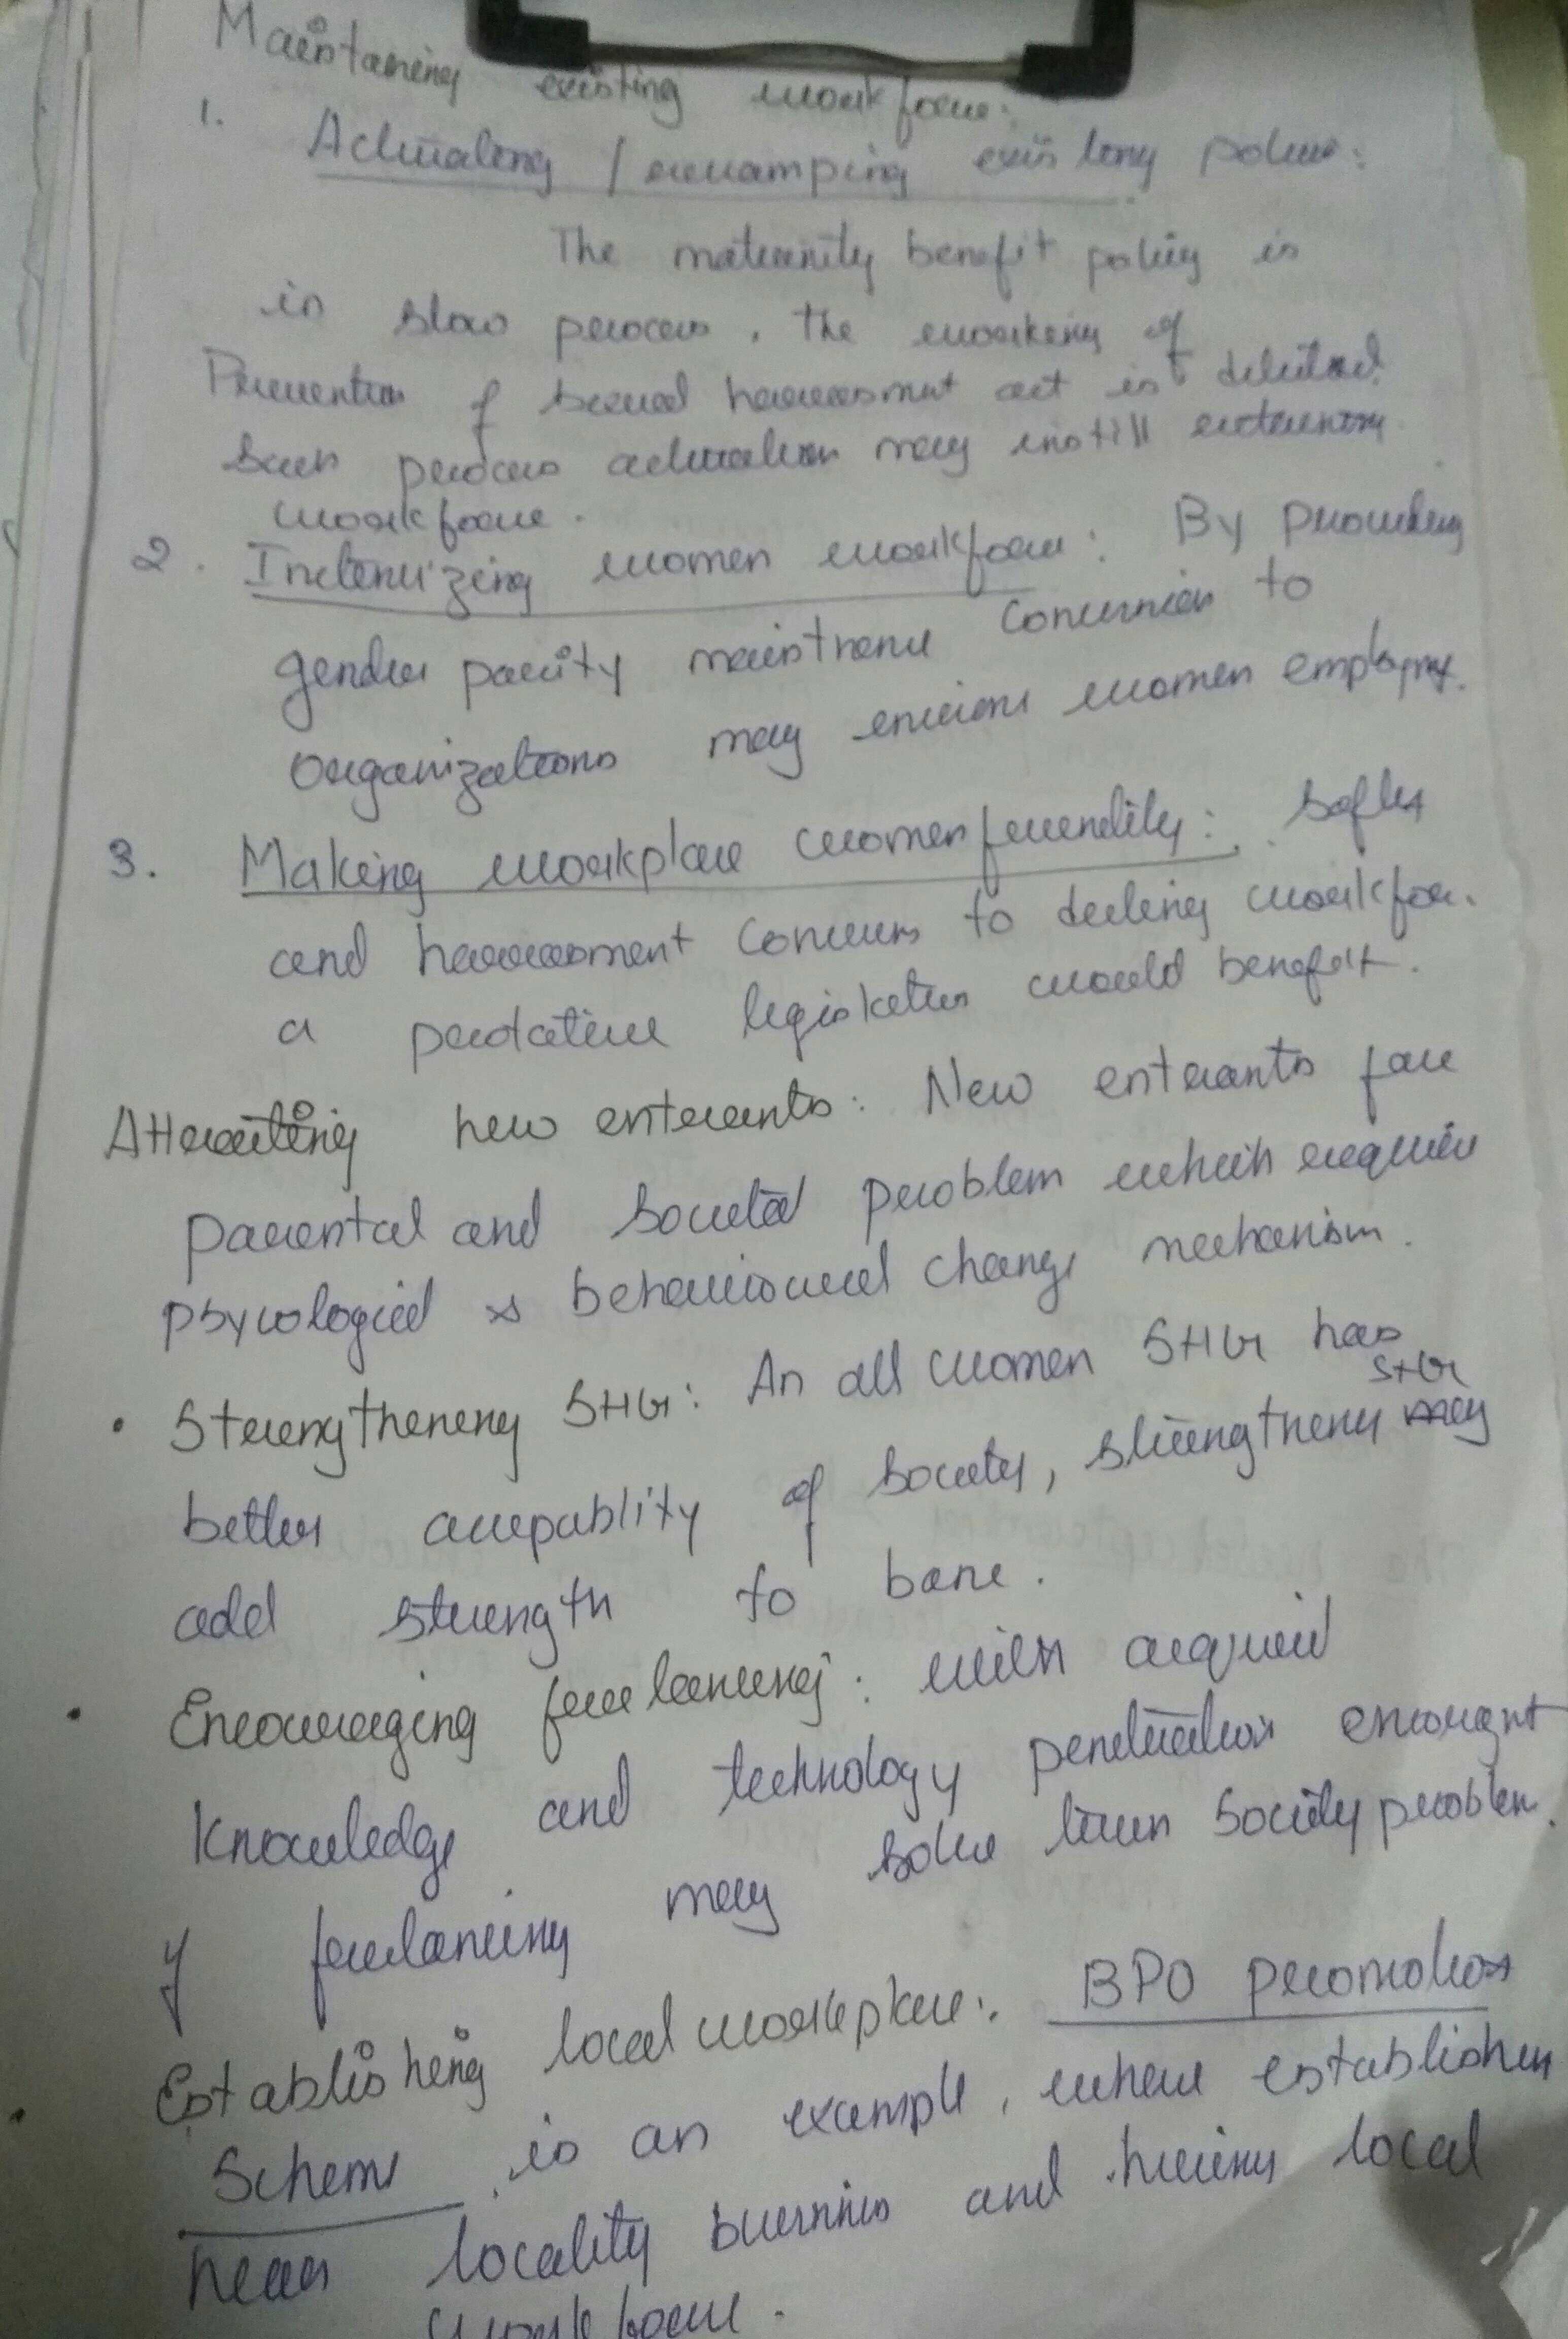 Maintaining existing workforce:
1. Actuating / revamping existing policies:
The maternity benefit policy is
in slow process. The working of
Prevention of sexual harrassment act is
such process actuation may instill
workforce.
2. Incentivizing women workforce: By providing
gender parity maintrence to
organizations may women employmt.
3. Making workplace womenfriendily: Safty
and harrassment concerns to workfor.
a protative legislation would benefit.
Attracting new enterants: New enterants face
parental and societal problem which require
psycological & behavioural change mechanism.
• Strengthening SHG: An all women SHG has
better accepablity of society, strengthening SHG
add strength to bane.
• Encouraging freelancing: with acquired
knowledge and technology penetration
of freelancing may solve society problem.
• Establishing local workplace: BPO promotion
Scheme is an example, where establishen
near locality business and hiring local
workforce.